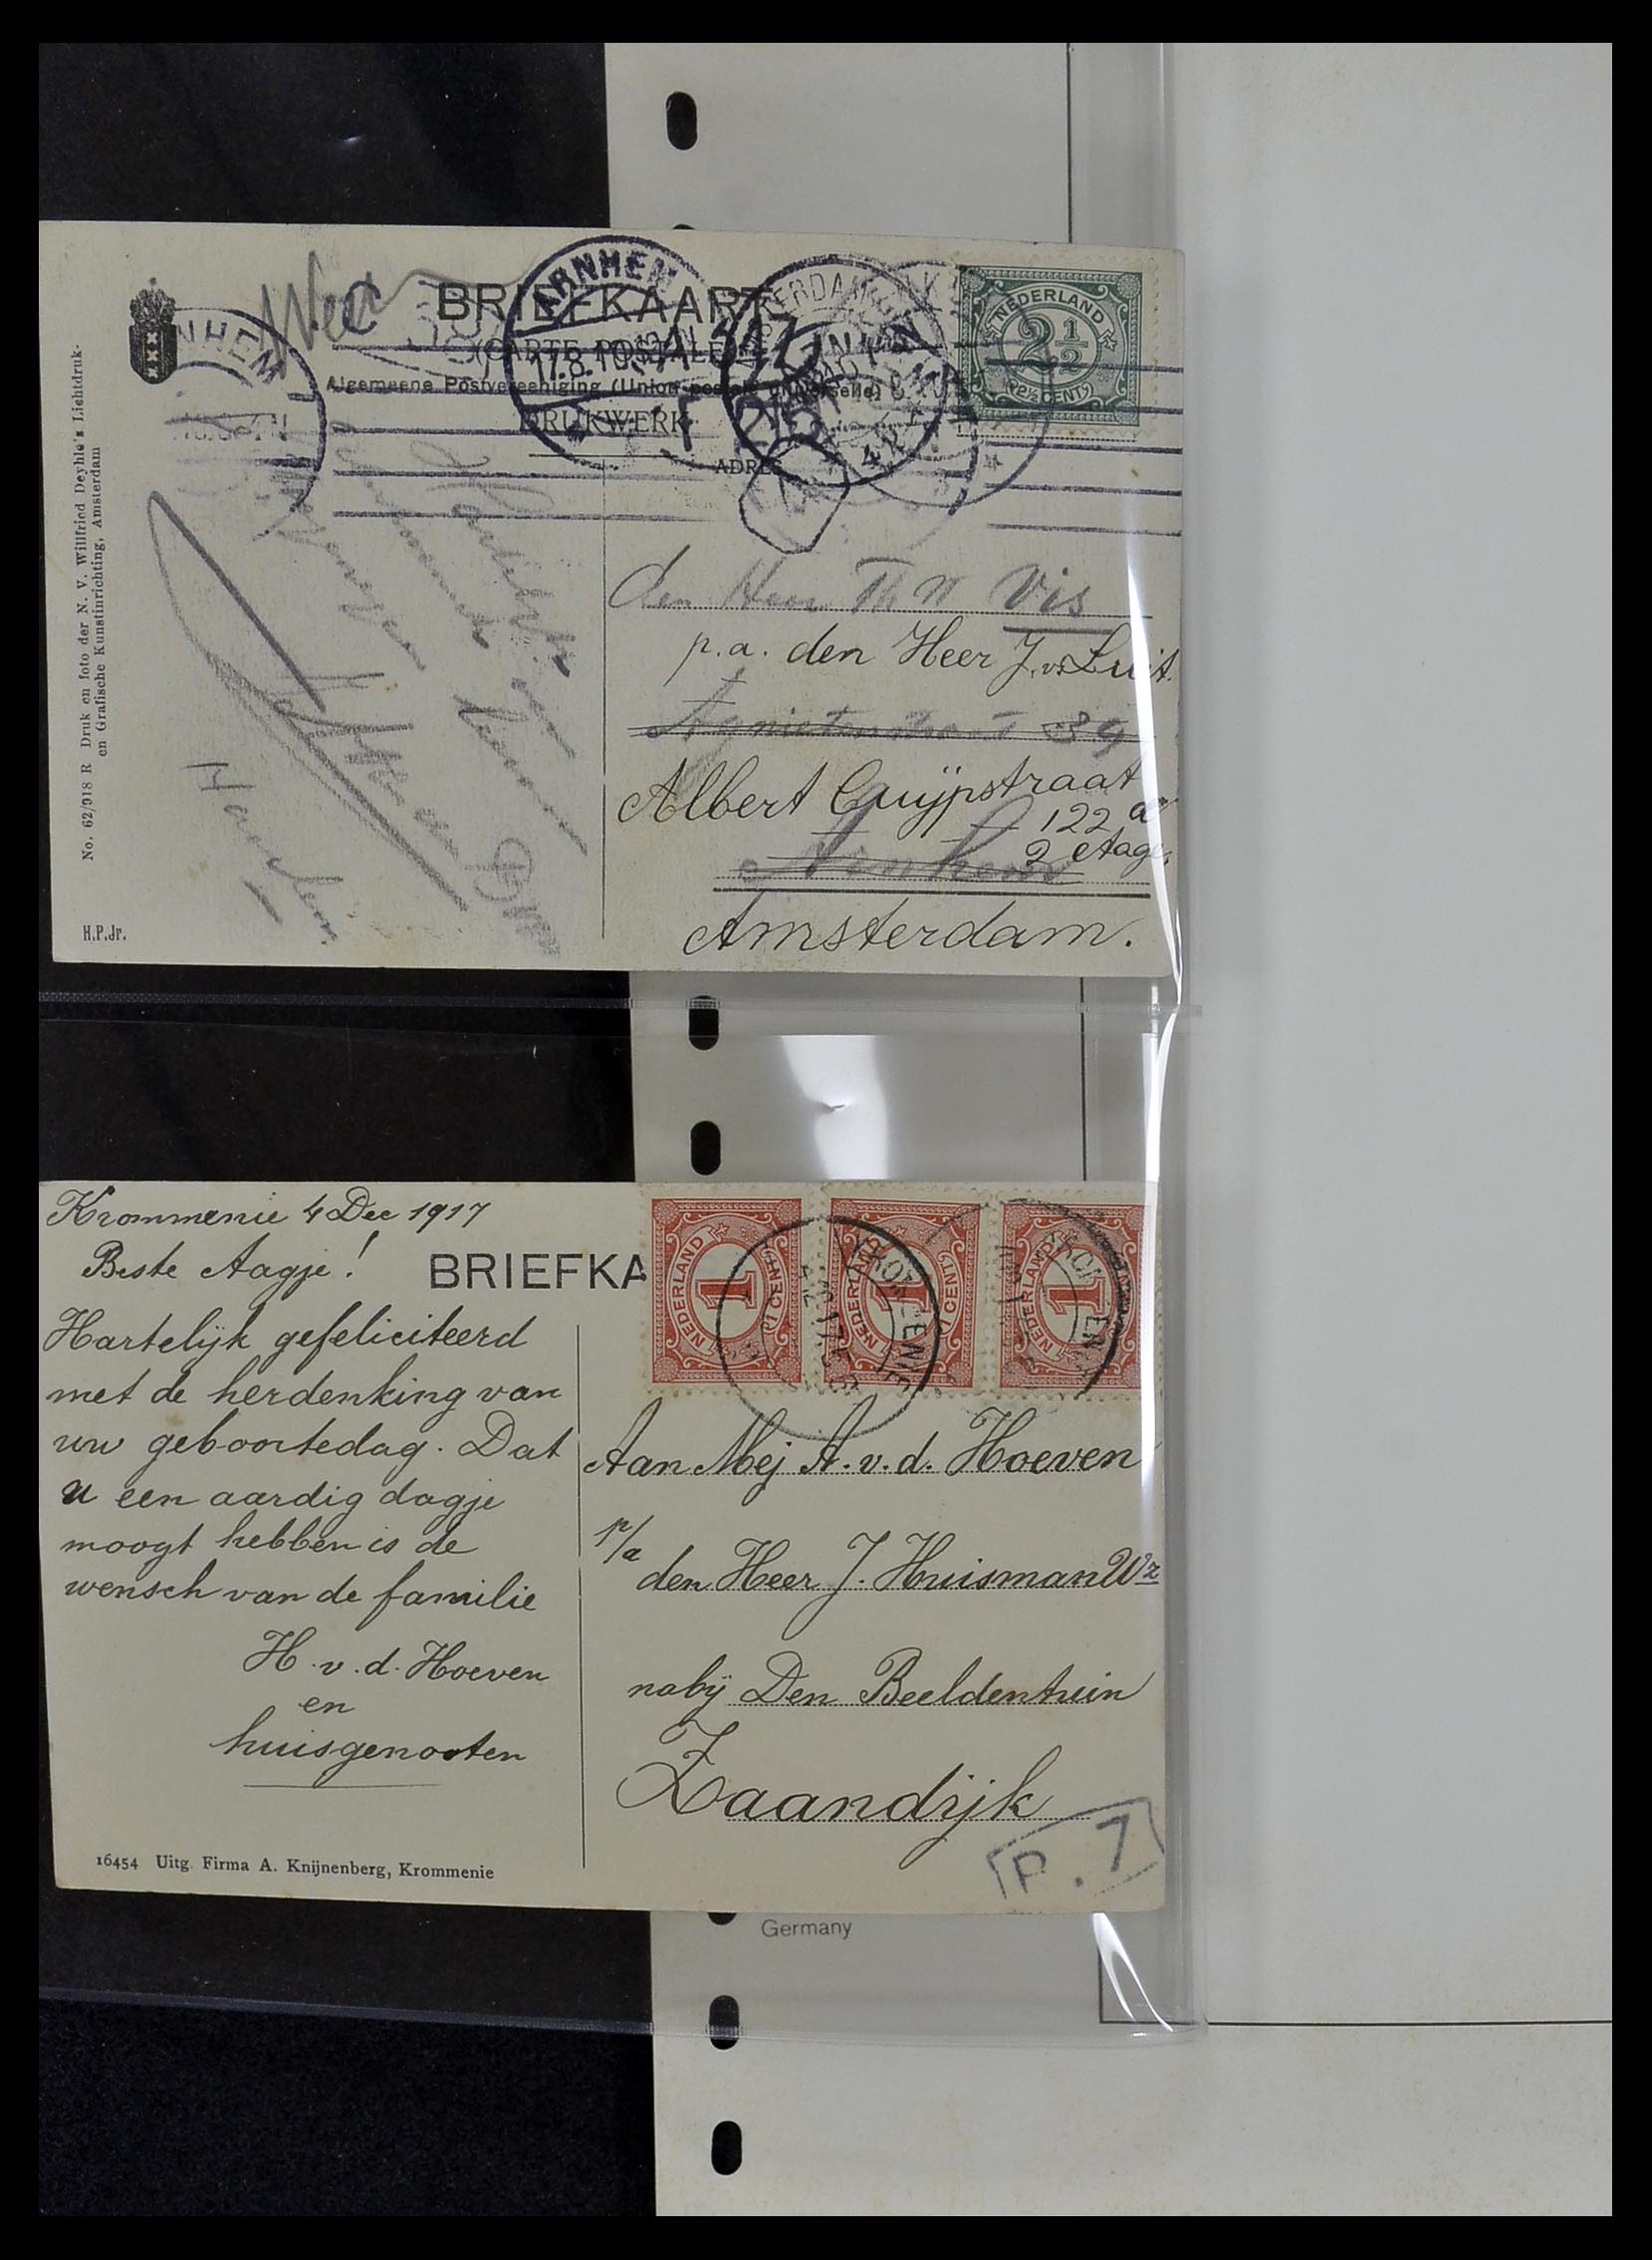 BRIEFKAART
(CARTE POSTALE)
Algemeene Postvereeniging (Union postale universelle)
DRUKWERK
ADRES
ARNHEM
17.8.10
NEDERLAND
2½
(2½ CENT)
No. 62/918 R Druk en foto der N. V. Willfried Deyhle's Lichtdruk-
en Grafische Kunstinrichting, Amsterdam
H.P.Jr.
Haarlem
den Heer Th W Vis
p.a. den Heer J. v. Luit.
Agnietenstraat 39
Albert Cuijpstraat
122 a
2 etage
Arnhem
Amsterdam.
Krommenie 4 Dec 1917
Beste Aagje!
BRIEFKA
Hartelijk gefeliciteerd
met de herdenking van
uw geboortedag. Dat
u een aardig dagje
moogt hebben is de
wensch van de familie
H. v. d. Hoeven
en
huisgenooten
16454 Uitg. Firma A. Knijnenberg, Krommenie
NEDERLAND
1
(1 CENT)
NEDERLAND
1
(1 CENT)
NEDERLAND
1
KROMMENIE
Aan Mej A. v. d. Hoeven
p/a
den Heer J. Huisman Wz
nabij Den Beeldentuin
Zaandijk
P. 7
Germany